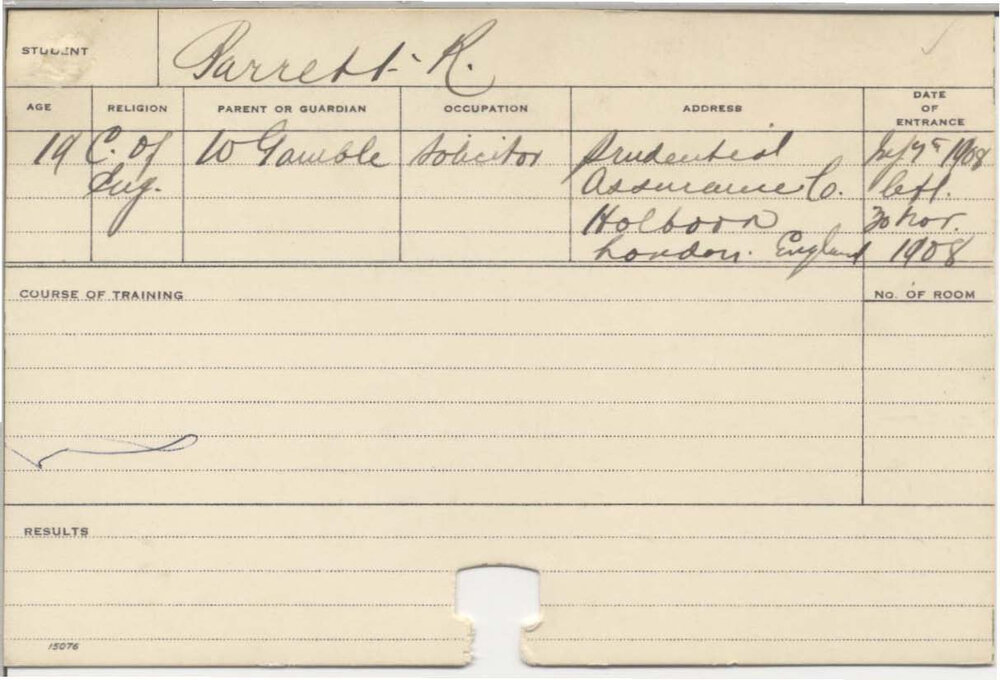 STUDENT Parrett R.
AGE RELIGION PARENT OR GUARDIAN OCCUPATION ADDRESS DATE OF ENTRANCE
19 C. of W Gamble Solicitor Prudential 7th 1908
Eng. Assurance Co. left
Holborn 30 Nov.
London. England 1908
COURSE OF TRAINING No. OF ROOM
RESULTS
15076